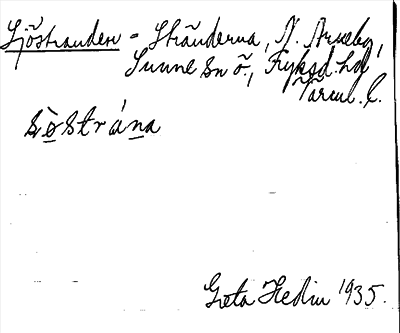 Sjöstranden - Stränderna, N. Arneby,
Sunne sn ö., Fryksd. hd
Värml. l.
sö̀strána
Greta Hedin 1935.